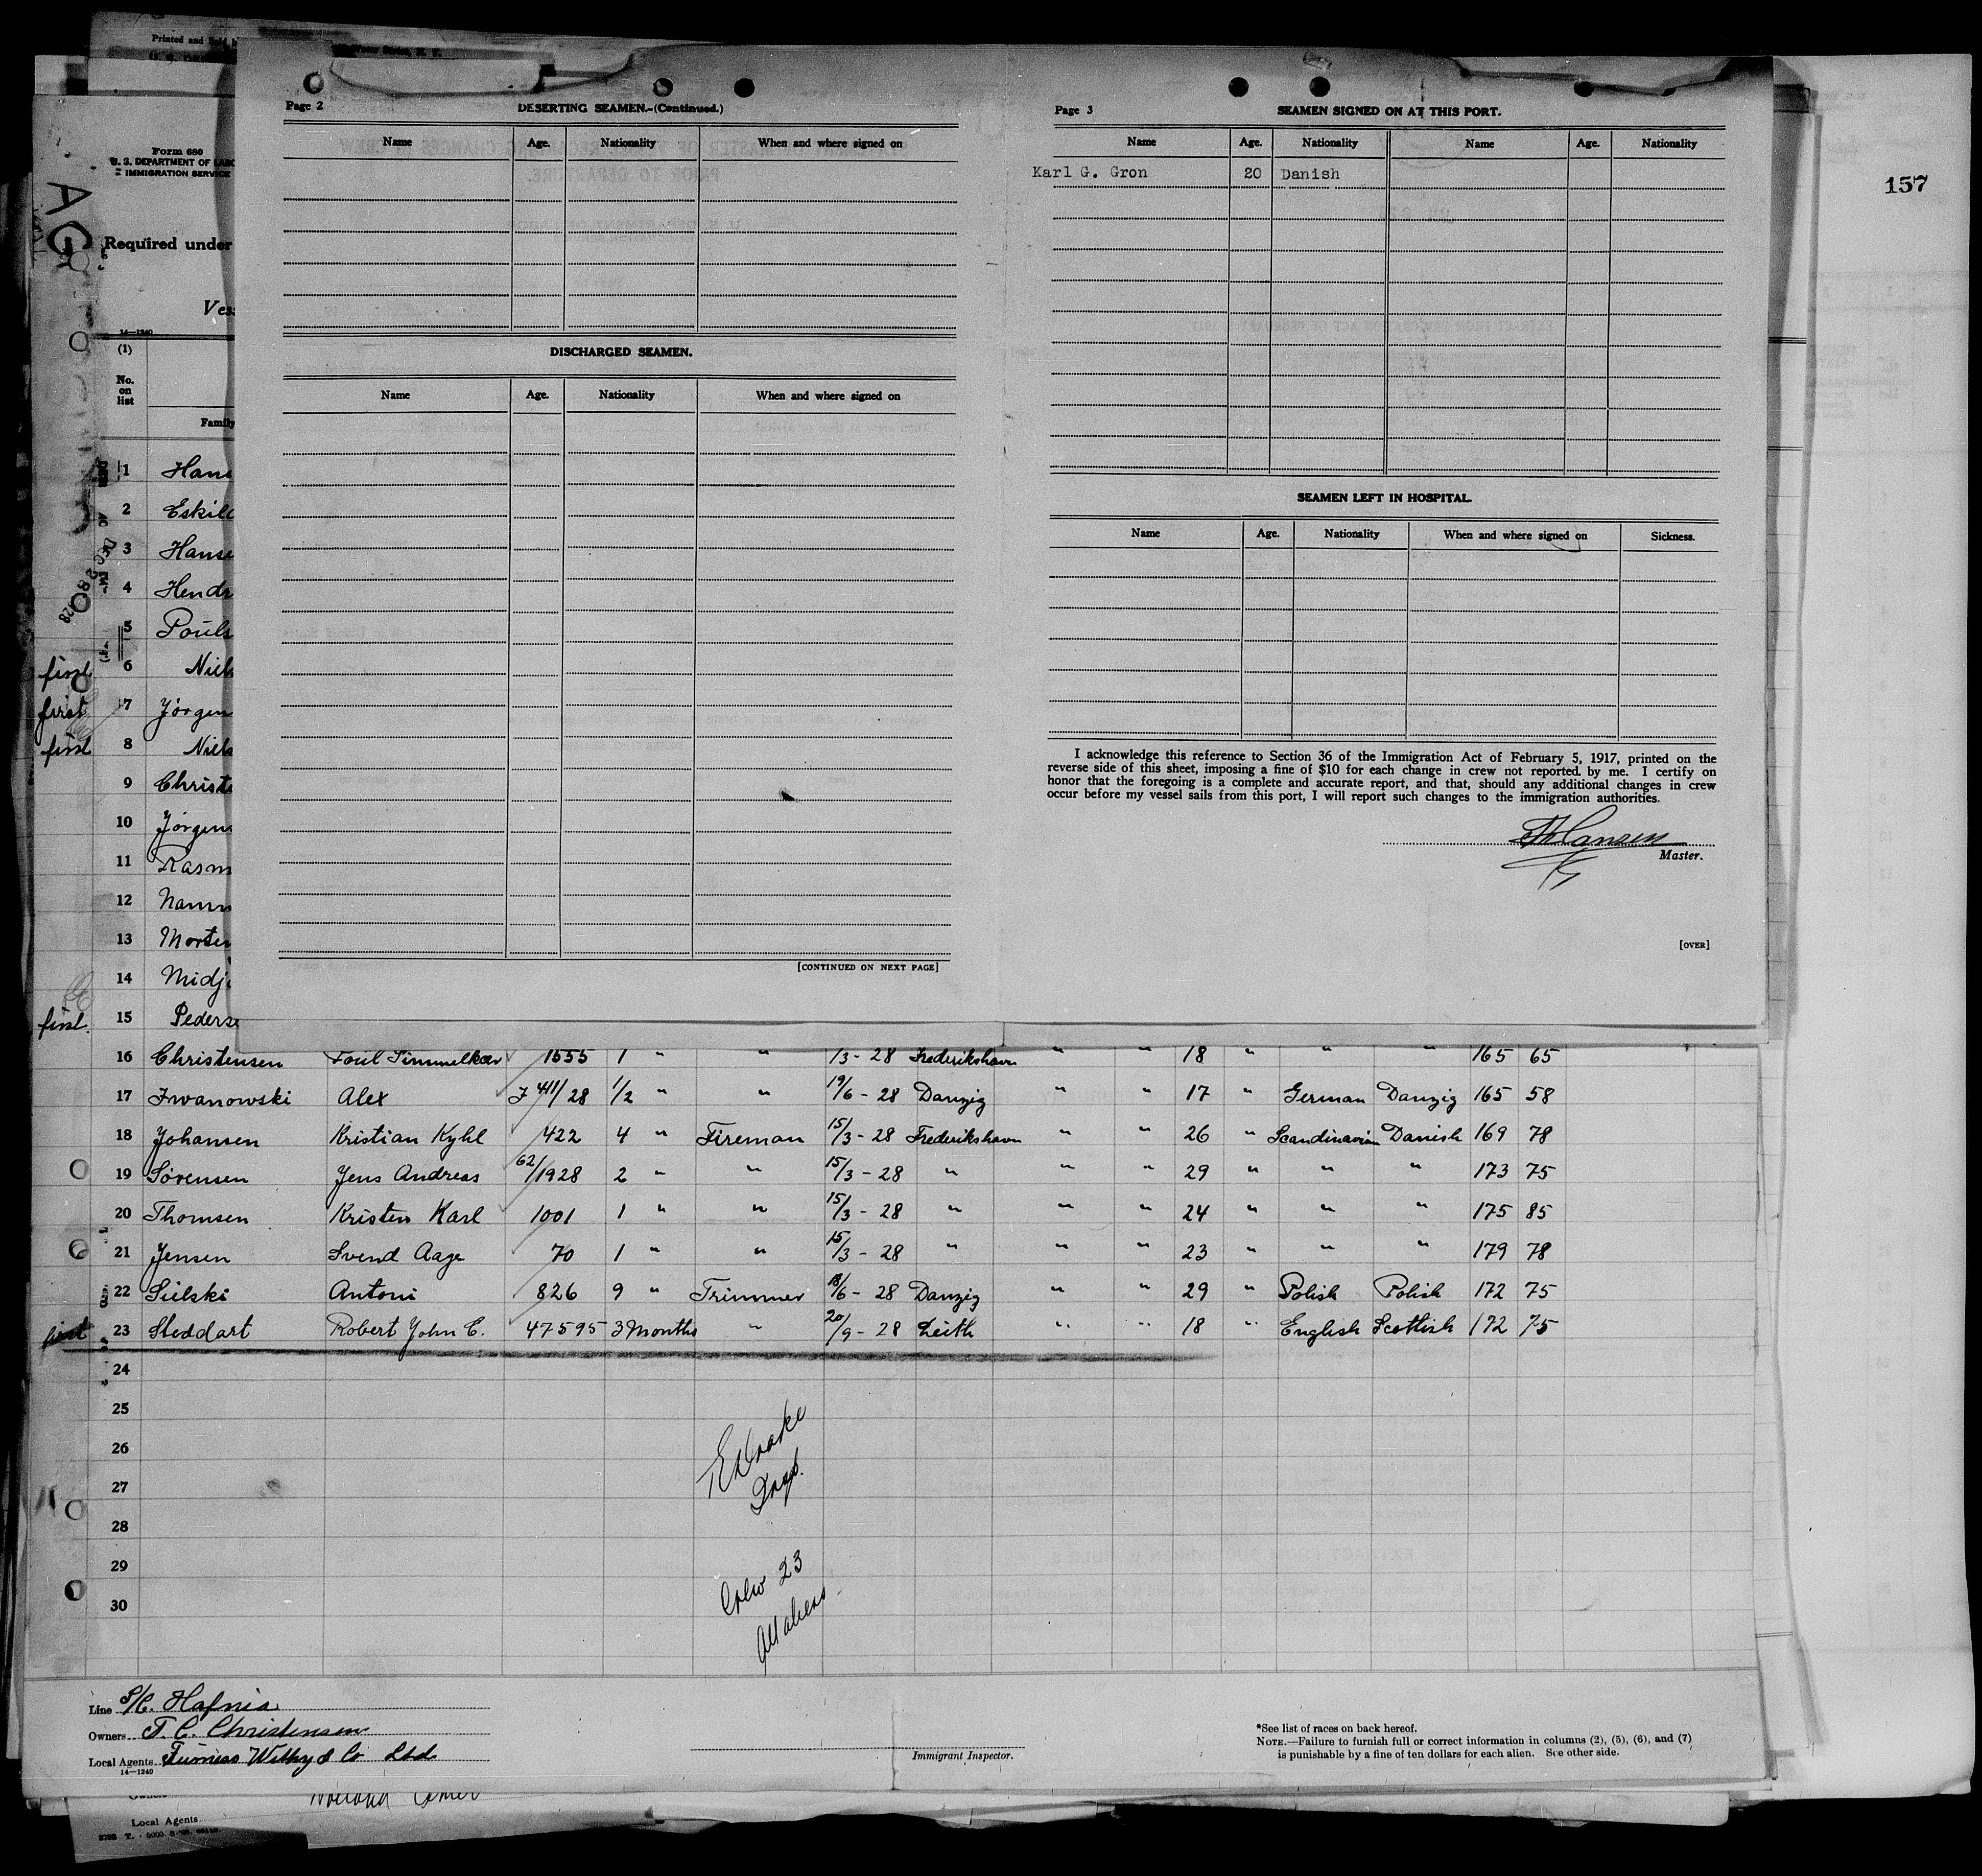 Printed and
157
Form 680
U. S. DEPARTMENT OF LABO
IMMIGRATION SERVICE
Required under
Ves
14—1240
(1)
No.
on
list
Family
Page 2
DESERTING SEAMEN.-(Continued.)
Name Age. Nationality When and where signed on
DISCHARGED SEAMEN.
Name Age. Nationality When and where signed on
[CONTINUED ON NEXT PAGE]
Page 3
SEAMEN SIGNED ON AT THIS PORT.
Name Age. Nationality Name Age. Nationality
Karl G. Gron 20 Danish
SEAMEN LEFT IN HOSPITAL.
Name Age. Nationality When and where signed on Sickness.
I acknowledge this reference to Section 36 of the Immigration Act of February 5, 1917, printed on the
reverse side of this sheet, imposing a fine of $10 for each change in crew not reported by me. I certify on
honor that the foregoing is a complete and accurate report, and that, should any additional changes in crew
occur before my vessel sails from this port, I will report such changes to the immigration authorities.
Master.
[OVER]
1 Hans
2 Eskild
3 Hanse
4 Hendr
5 Pouls
first 6 Niels
first 7 Jörgen
first 8 Niels
9 Christe
10 Jörgens
11 Rasm
12 Namm
13 Morten
14 Midj
first. 15 Pederse
16 Christensen 1555 1 " " 1/3 - 28 Frederikshavn " " 18 " " " 165 65
17 Iwanowski Alex 411/28 1/2 " " 19/6 - 28 Danzig " " 17 " German Danzig 165 58
18 Johansen Kristian Kyhl 422 4 " Fireman 15/3 - 28 Frederikshavn " " 26 " Scandinavian Danish 169 78
19 Sörensen Jens Andreas 62/1928 2 " " 15/3 - 28 " " " 29 " " " 173 75
20 Thomsen Kristen Karl 1001 1 " " 15/3 - 28 " " " 24 " " " 175 85
21 Jensen Svend Aage 70 1 " " 15/3 - 28 " " " 23 " " " 179 78
22 Sielski Antoni 826 9 " Trimmer 18/6 - 28 Danzig " " 29 " Polish Polish 172 75
first 23 Steddart Robert John C. 47595 3 Months " 20/9 - 28 Leith " " 18 " English Scottish 172 75
24
25
26
27
28
29
30
Insp.
Crew 23
All aliens
Line S/C. Hafnia
Owners T. C. Christensen
Local Agents Furness Withy & Co Ltd
14—1240
Immigrant Inspector.
*See list of races on back hereof.
NOTE.—Failure to furnish full or correct information in columns (2), (5), (6), and (7)
is punishable by a fine of ten dollars for each alien. See other side.
Owners Holland Amer
Local Agents